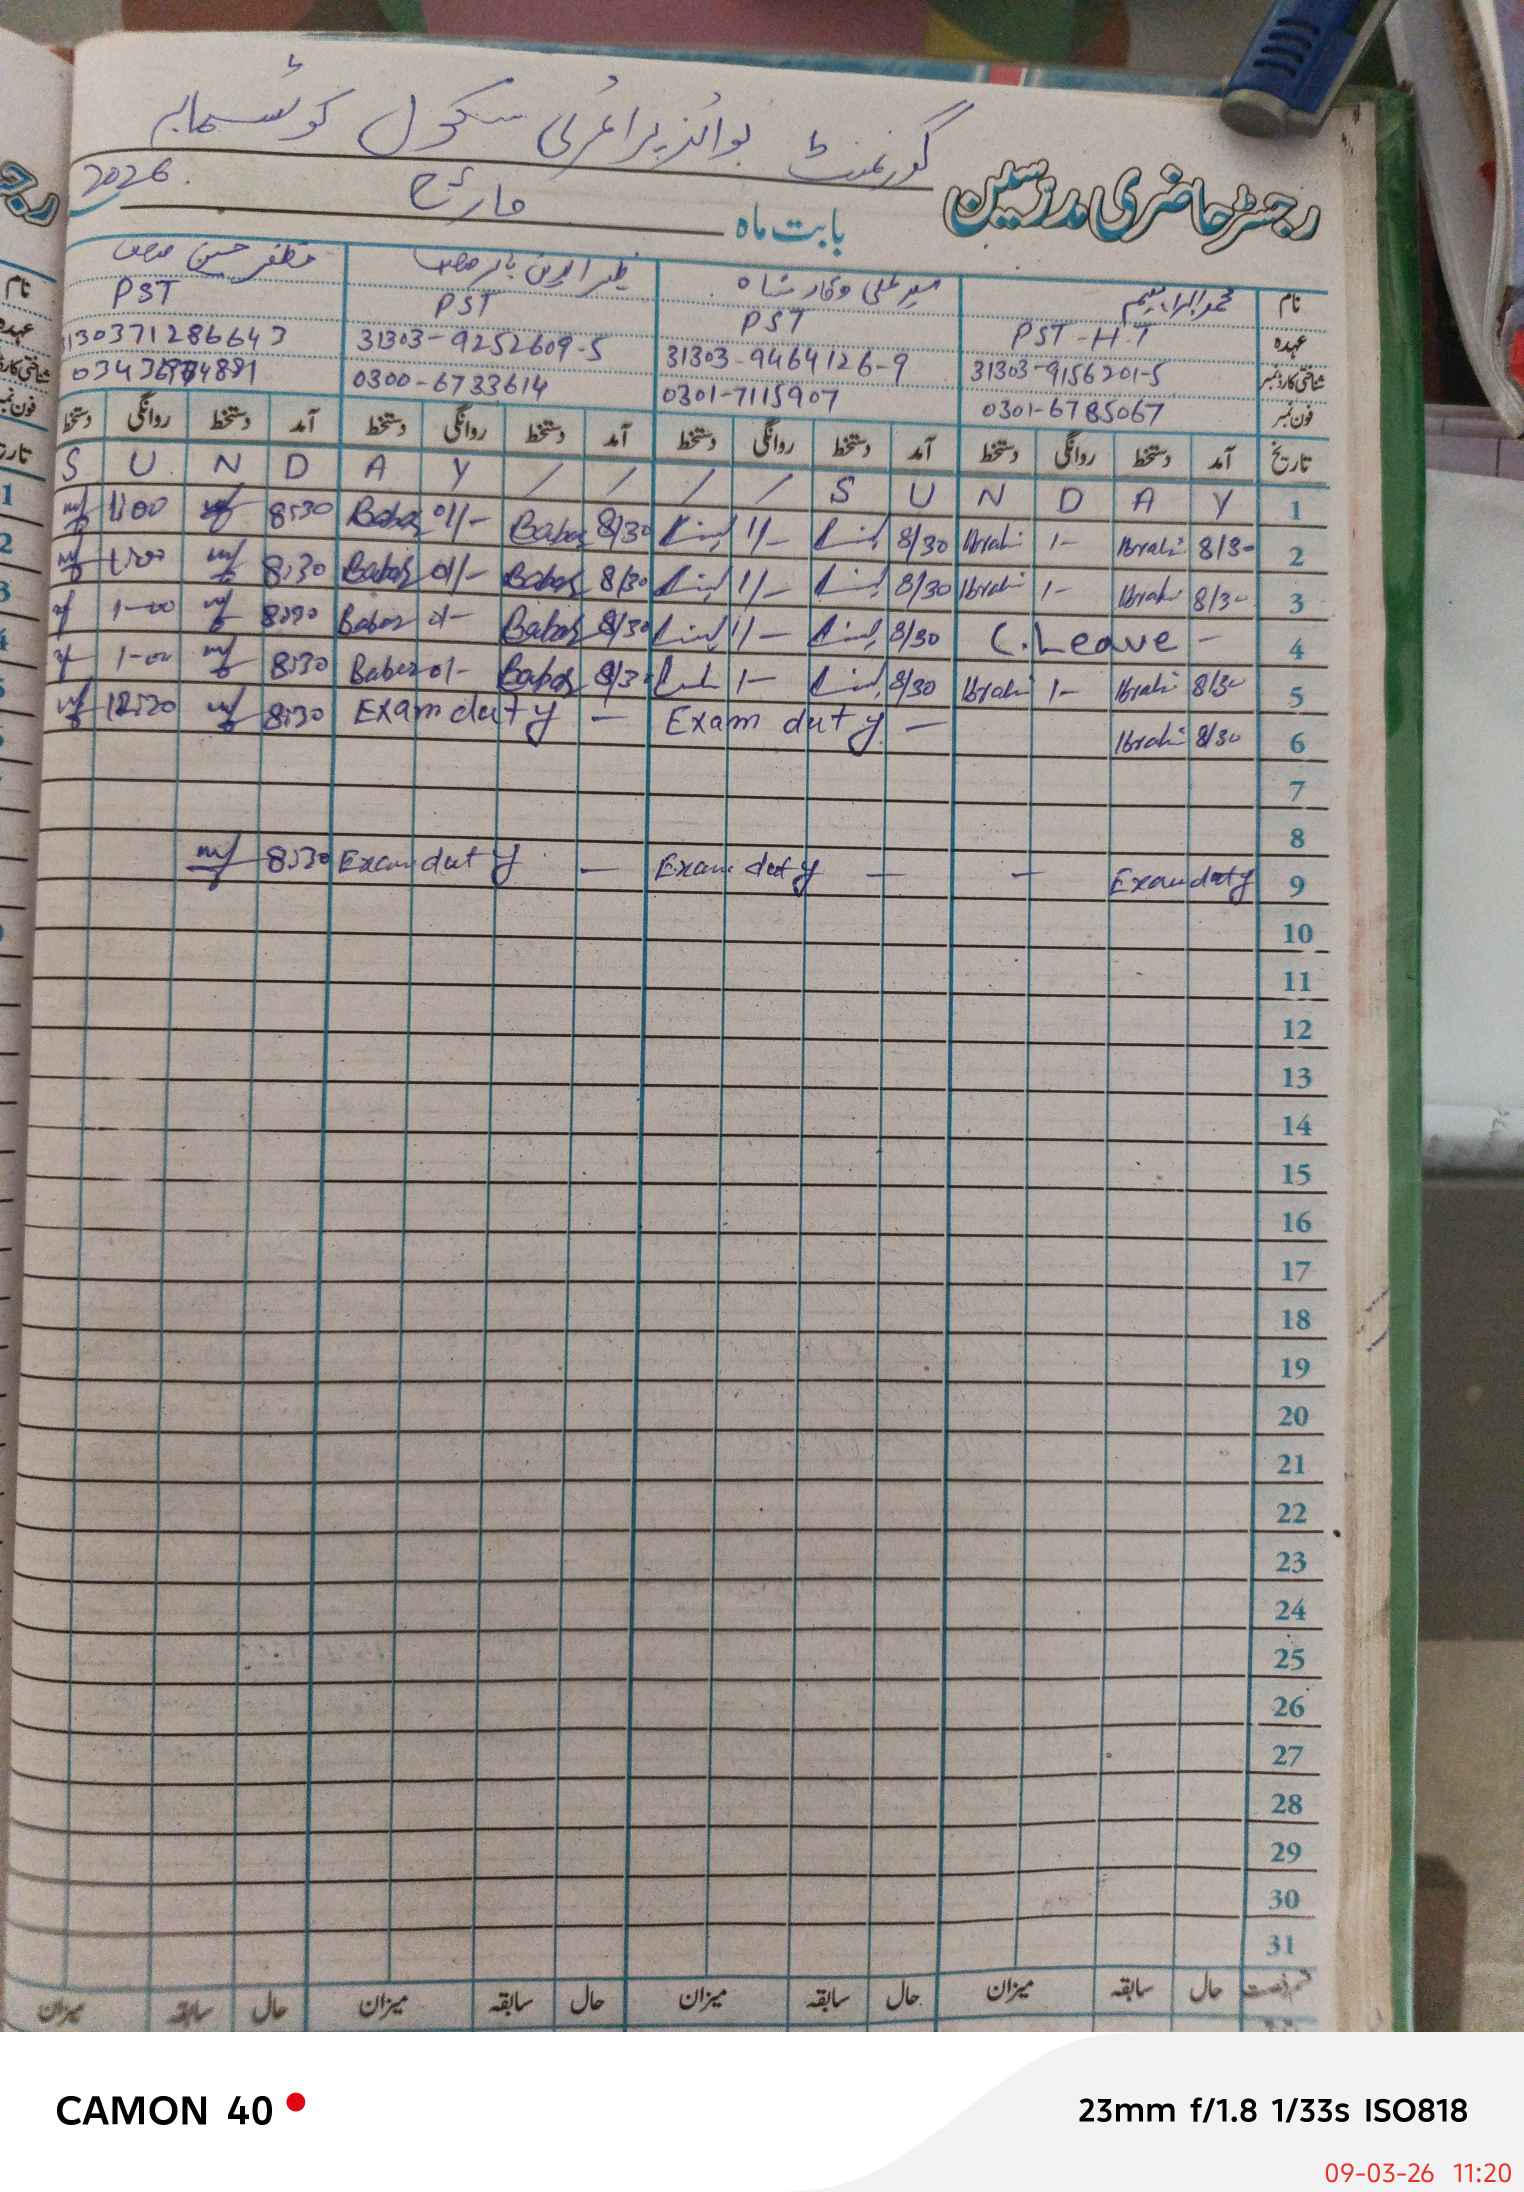 گورنمنٹ بوائز پرائمری سکول کوٹسمابہ
رجسٹر حاضری مدرسین
بابت ماہ مارچ 2026.
نام محمد ابراہیم سید علی وقار شاہ ظہیر الدین بابر مظفر حسین
عہدہ PST-H.T PST PST PST
شناختی کارڈ نمبر 31303-9156201-5 31303-9464126-9 31303-9252609-5 3130371286643
فون نمبر 0301-6785067 0301-7115907 0300-6733614
تاریخ آمد دستخط روانگی دستخط آمد دستخط روانگی دستخط آمد دستخط روانگی دستخط آمد دستخط روانگی دستخط
S U N D A Y / / / / S U N D A Y 1
mf 1:00 mf 8:30 Babar 01/- Babar 8/30 1/- 8/30 Ibrahi 1- Ibrahi 8/30 2
mf 1:00 mf 8:30 Babar 01/- Babar 8/30 1/- 8/30 Ibrahi 1- Ibrahi 8/30 3
mf 1-00 mf 8:30 Babar 01- Babar 8/30 1/- 8/30 C.Leave - 4
mf 1-00 mf 8:30 Babar 01- Babar 8/30 1- 8/30 Ibrahi 1- Ibrahi 8/30 5
mf 12:30 mf 8:30 Exam duty - Exam duty - Ibrahi 8/30 6
7
8
mf 8:30 Exam duty - Exam duty - - Exam duty 9
10
11
12
13
14
15
16
17
18
19
20
21
22
23
24
25
26
27
28
29
30
31
حال سابقہ میزان حال سابقہ میزان حال سابقہ میزان حال سابقہ میزان
CAMON 40
23mm f/1.8 1/33s ISO818
09-03-26 11:20